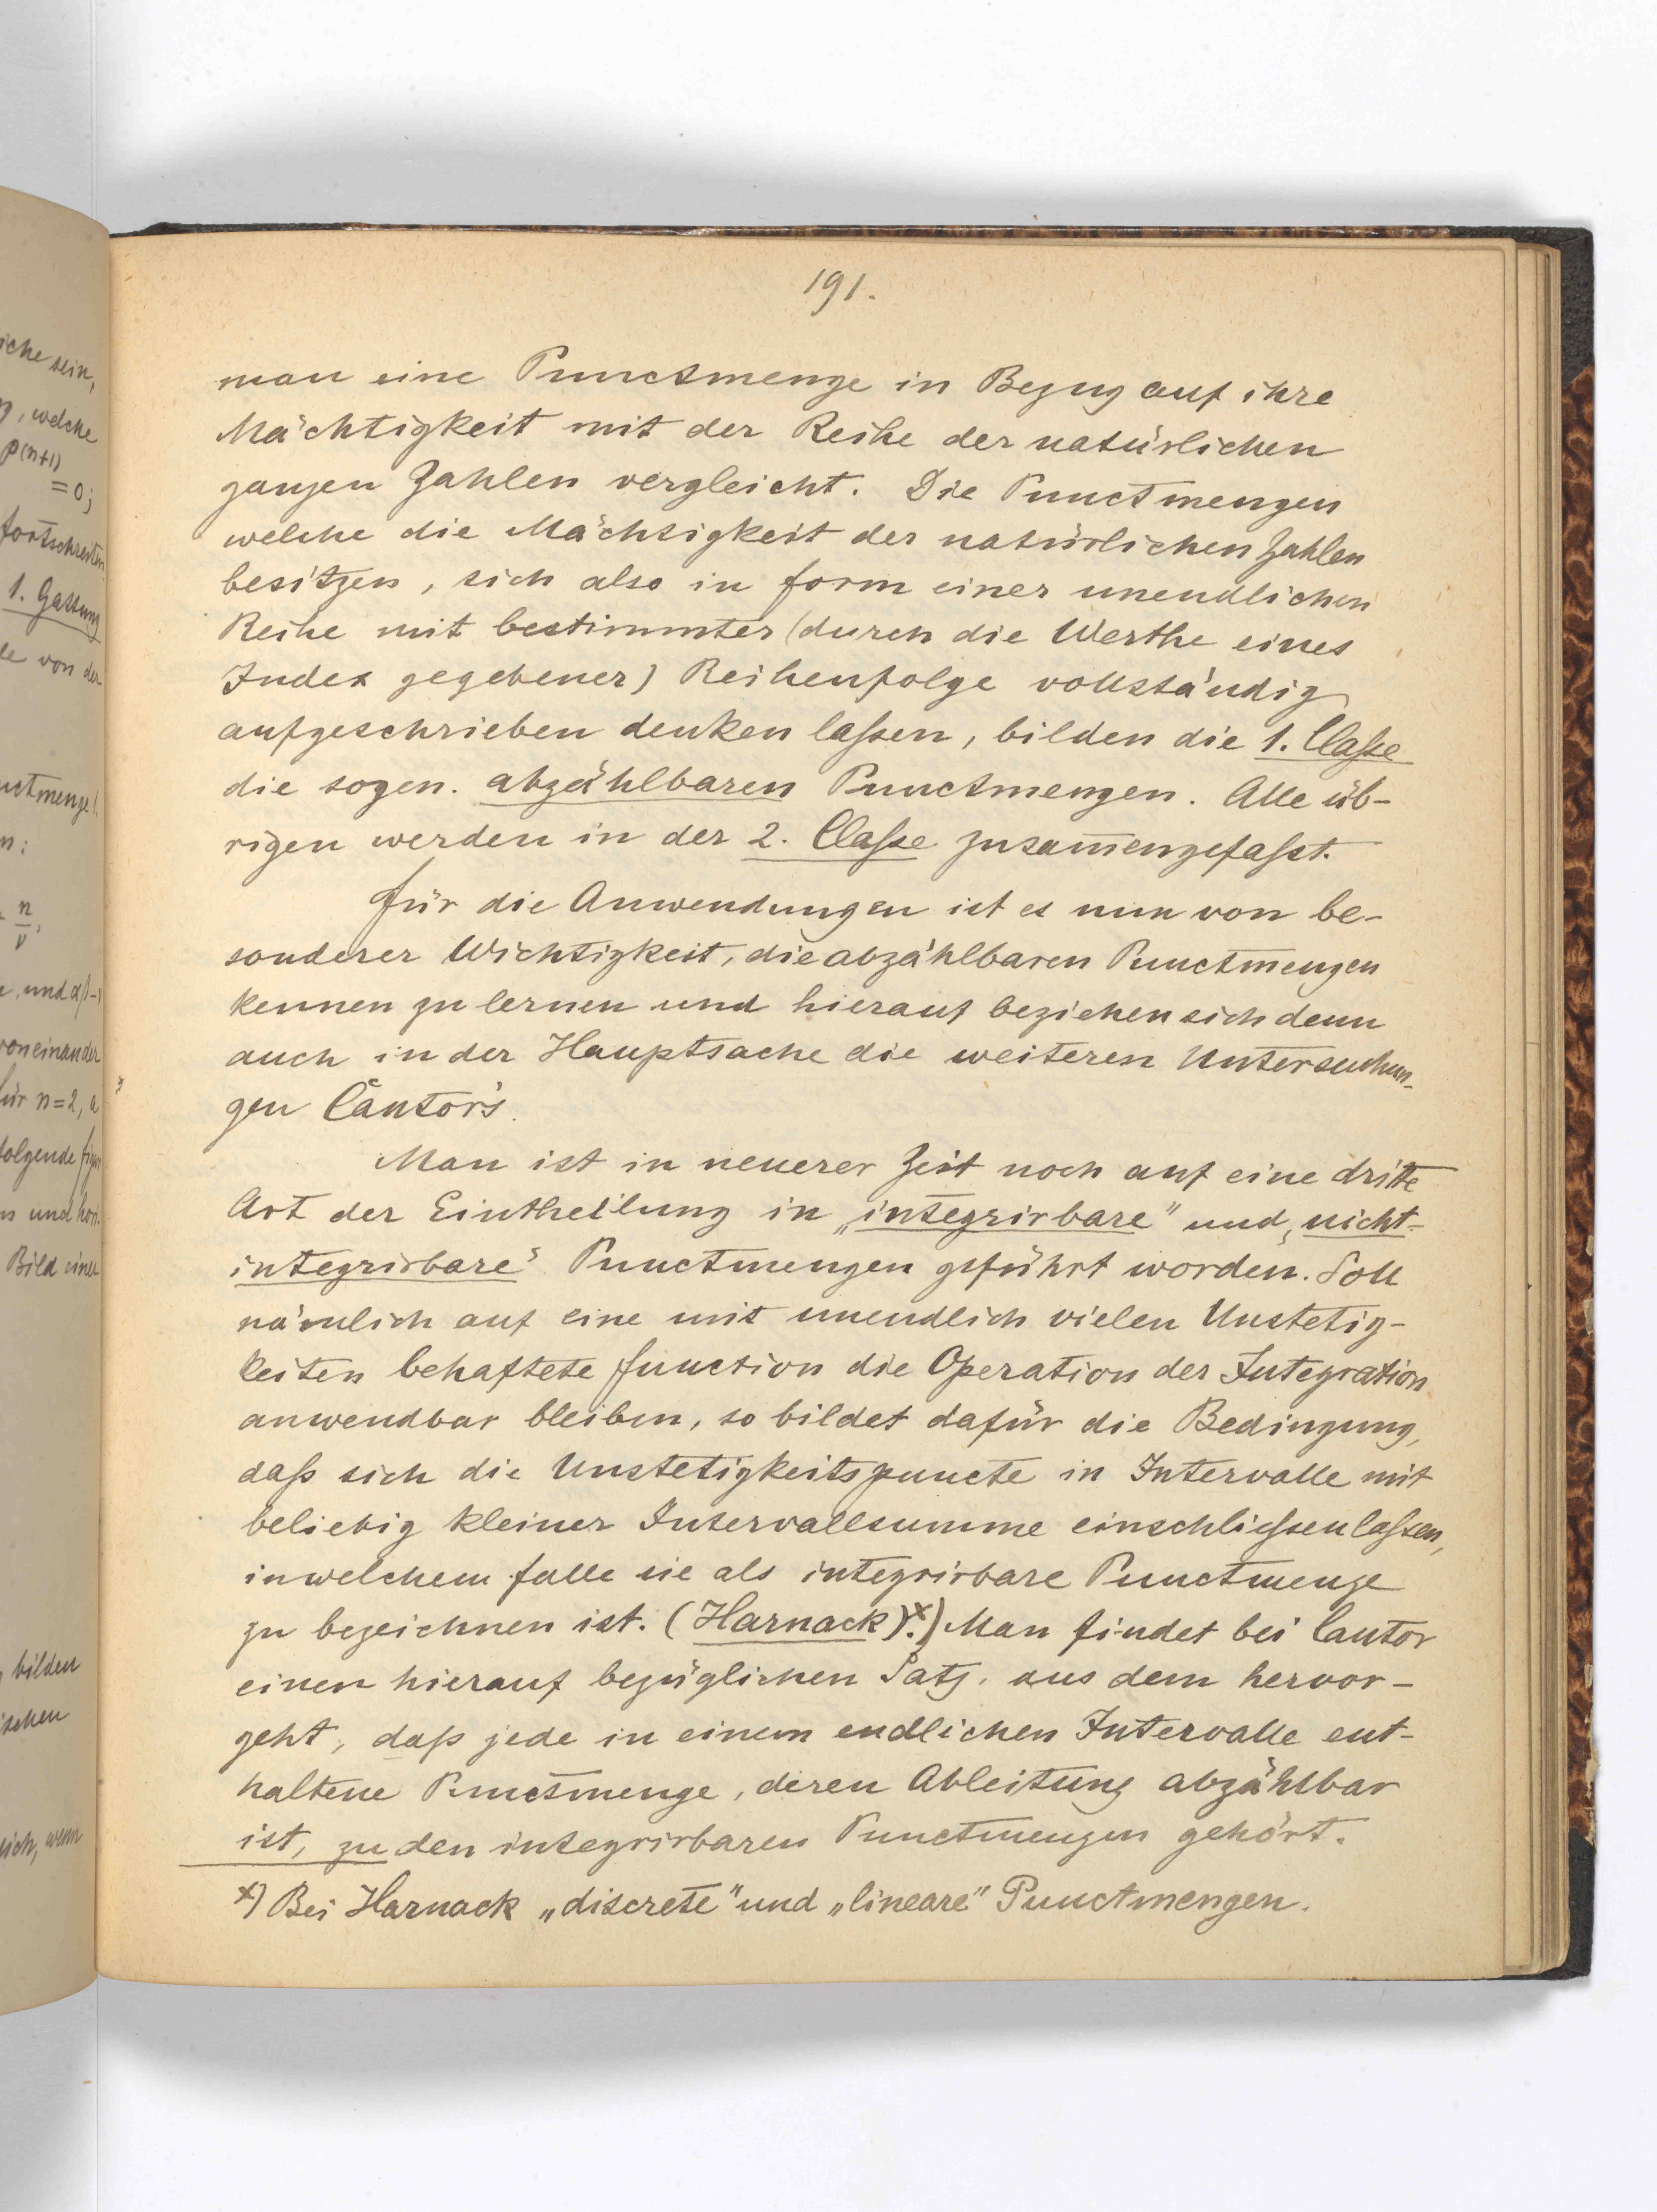 191.
man eine Punctmenge in Bezug auf ihre
Mächtigkeit mit der Reihe der natürlichen
ganzen Zahlen vergleicht. Die Punctmengen
welche die Mächtigkeit der natürlichen Zahlen
besitzen, sich also in Form einer unendlichen
Reihe mit bestimmter (durch die Werthe eines
Index gegebener) Reihenfolge vollständig
aufgeschrieben denken laſsen, bilden die 1. Claſse
die sogen. abzählbaren Punctmengen. Alle üb-
rigen werden in der 2. Claſse zusam̅engefaſst.
Für die Anwendungen ist es nun von be-
sonderer Wichtigkeit, die abzählbaren Punctmengen
kennen zu lernen und hierauf beziehen sich denn
auch in der Hauptsache die weiteren Untersuchun-
gen Cantor's.
Man ist in neuerer Zeit noch auf eine dritte
Art der Eintheilung in „integrirbare" und „nicht-
integrirbare" Punctmengen geführt worden. Soll
nämlich auf eine mit unendlich vielen Unstetig-
keiten behaftete Function die Operation der Integration
anwendbar bleiben, so bildet dafür die Bedingung,
daß sich die Unstetigkeitspuncte in Intervalle mit
beliebig kleiner Intervallsumme einschlieſsen laſsen,
in welchem Falle sie als integrirbare Punctmenge
zu bezeichnen ist. (Harnack)ˣ.) Man findet bei Cantor
einen hierauf bezüglichen Satz, aus dem hervor-
geht, daß jede in einem endlichen Intervalle ent-
haltene Punctmenge, deren Ableitung abzählbar
ist, zu den integrirbaren Punctmengen gehört.
x) Bei Harnack „discrete" und „lineare" Punctmengen.
iche sein,
, welche
p(n+1)
= 0;
fortschreiten
1. Gattung
le von der
uctmenge!
n:
n
ν
, und
von einander
für n=2,
folgende Figur
und
Bild einer
bilden
ischen
sich, wenn